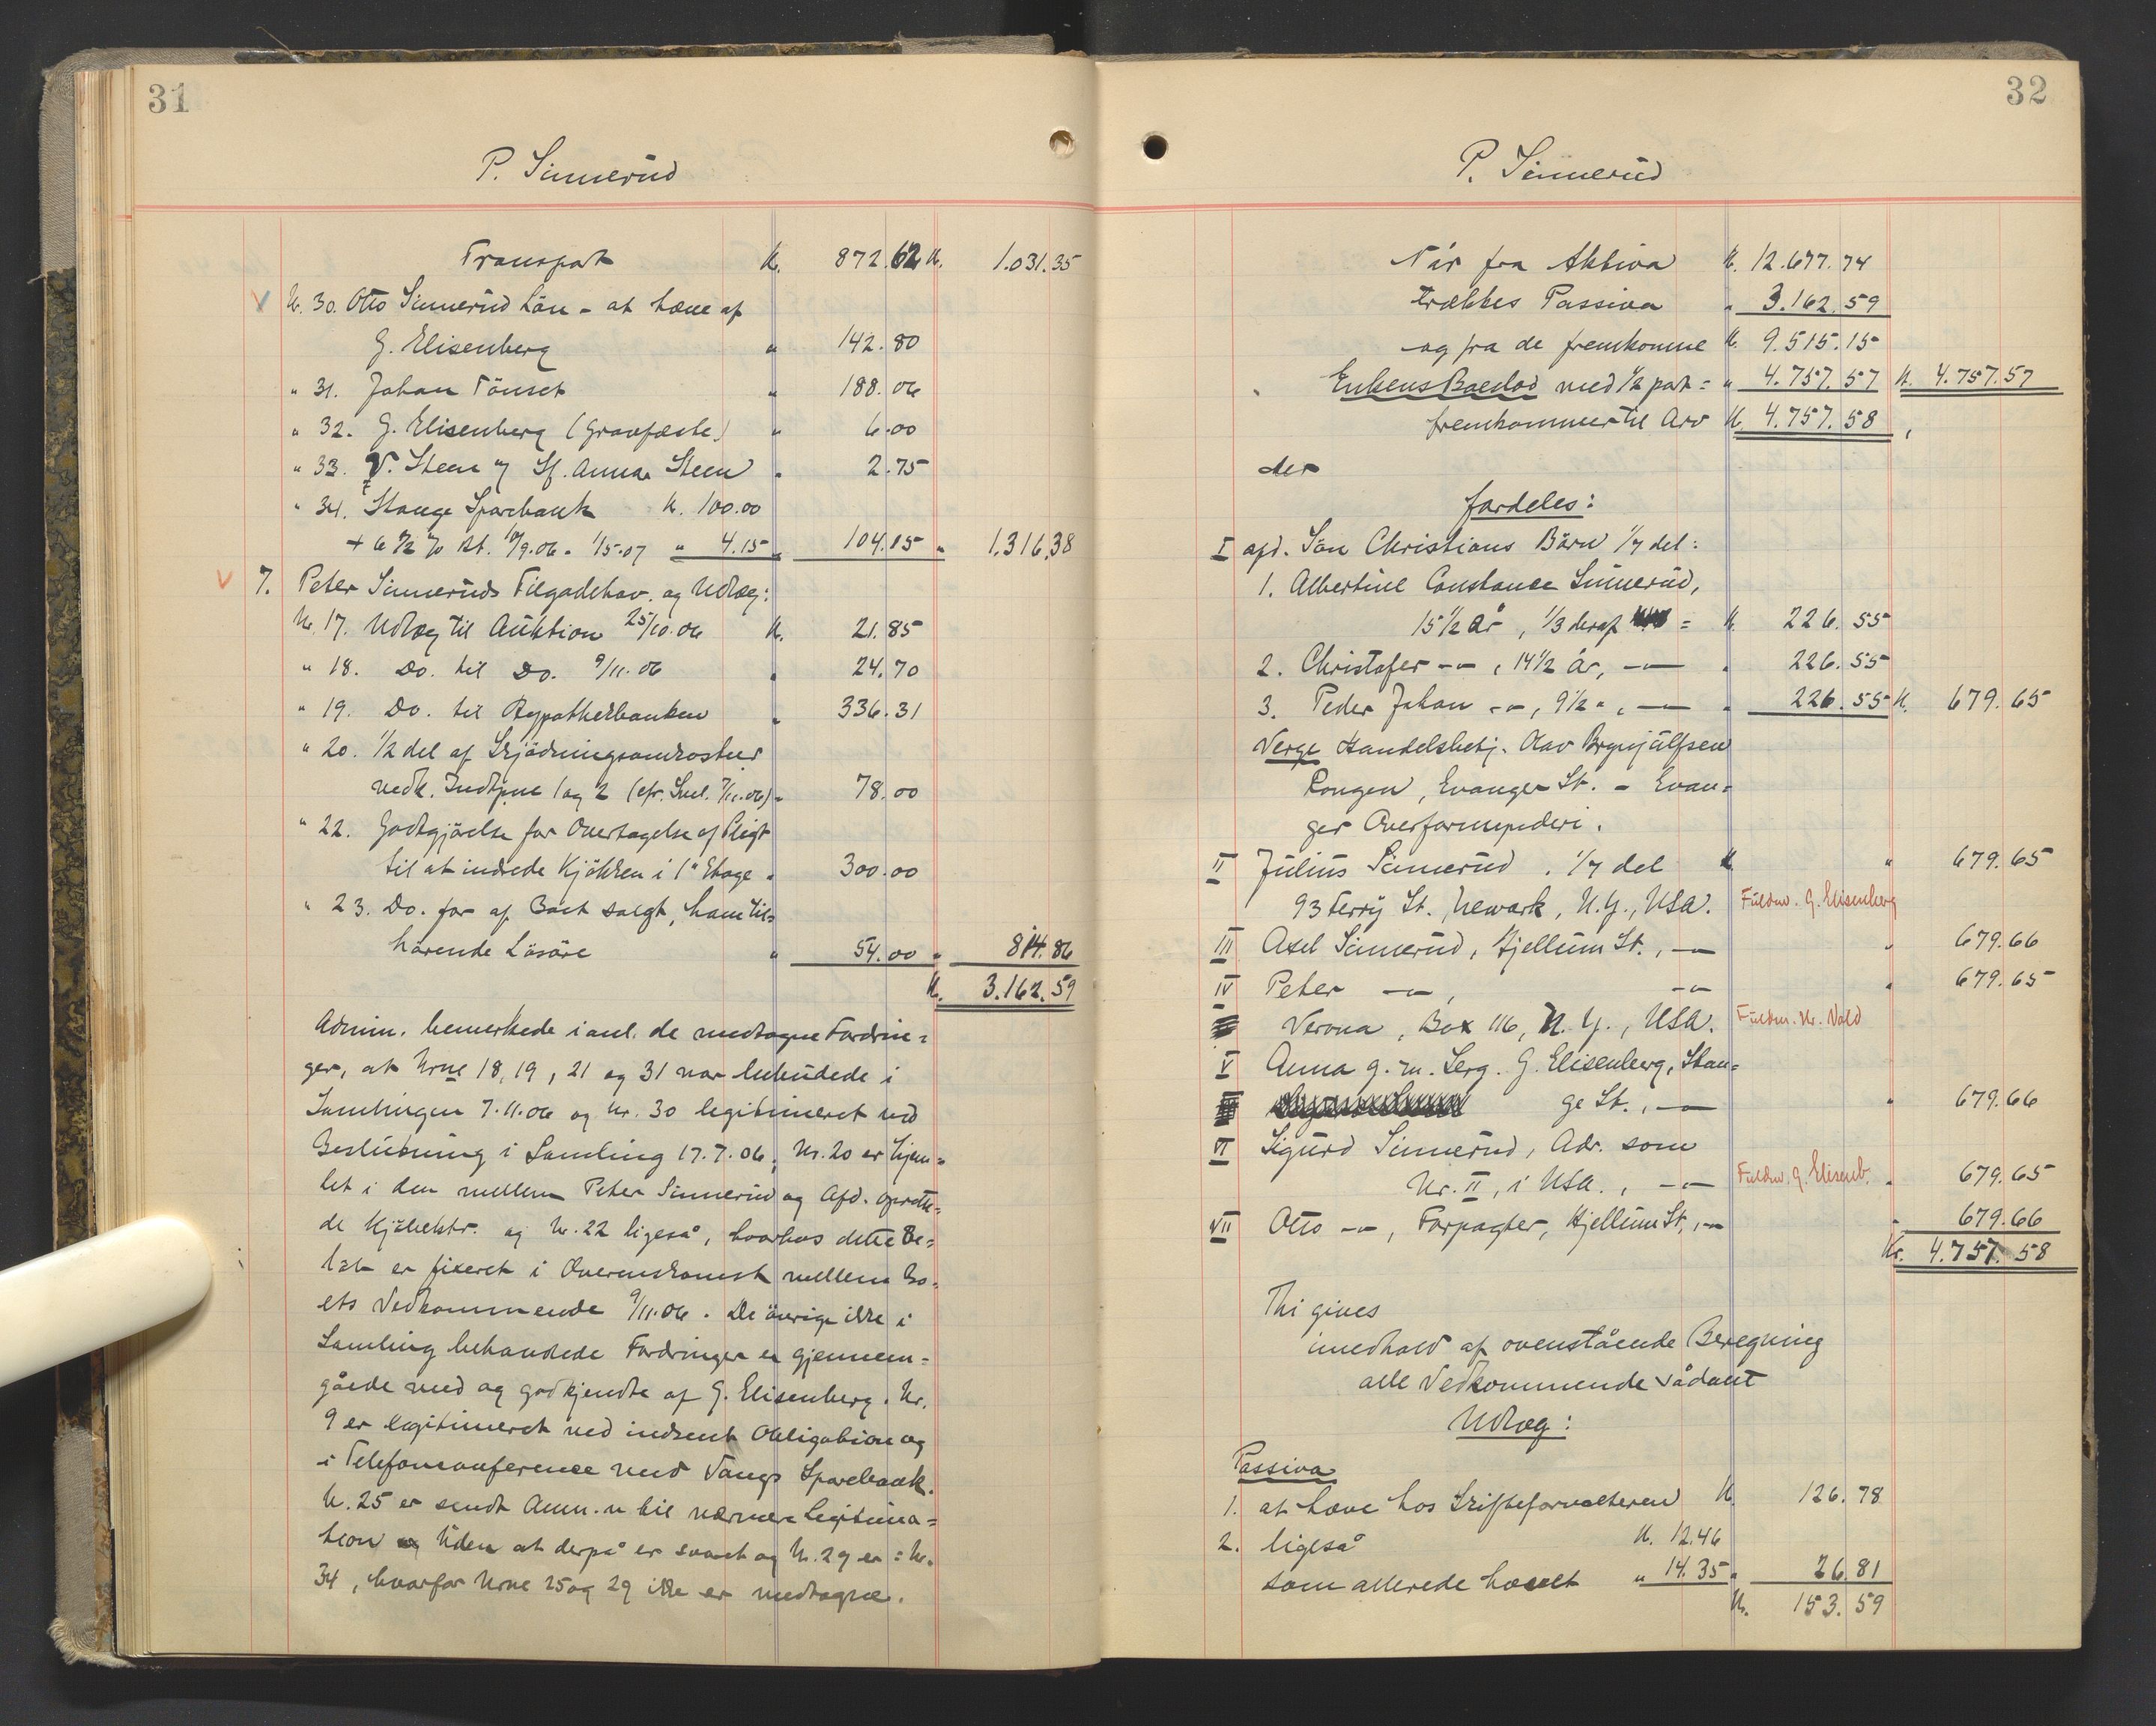 31
P. Sinnerud
Transport K. 872.62 K. 1.031.35
V N. 30. Otto Sinnerud Lön - at hæve af
G. Elisenberg " 142.80
" 31. Johan Tönset " 188.06
" 32. G. Elisenberg (Gravfæste) " 6.00
" 33. V. Steen og Sf. Anna Steen " 2.75
" 34. Stange Sparebank K. 100.00
+ 6 1/2 % Rt. 10/9.06 - 1/5.07 " 4.15 " 104.15 " 1.316.38
V 7. Peter Sinneruds Tilgodehav. og Udlæg:
Nr. 17. Udlæg til Auktion 25/10.06 K. 21.85
" 18. Do. til Do. 9/11.06 " 24.70
" 19. Do. til Hypothekbanken " 336.31
" 20. 1/2 del af Skjödningsomkostner
vedk. Indtægne 1 og 2 (cfr. Sml. 7/11.06) " 78.00
" 22. Godtgjörelse for Overtagelse af Pligt
til at indrede Kjökken i 1ste Etage " 300.00
" 23. Do. for af Boet solgt, ham til=
hörende Lösöre " 54.00 " 814.86
K. 3.162.59
Admin. bemerkede i anl. de medtagne Fordrin=
ger, at Nrne 18, 19, 21 og 31 var bebudede i
Samlingen 7.11.06 og Nr. 30 legitimeret ved
Beslutning i Samling 17.7.06; Nr. 20 er hjem=
let i den mellem Peter Sinnerud og Afd. oprette=
de Kjöbektr. og Nr. 22 ligeså, hvorhos dette Be=
löb er fixeret i Overenskomst mellem Bo=
ets Vedkommende 9/11.06. De övrige ikke i
Samling behandlede Fordringer er gjennem=
gåede med og godkjendte af G. Elisenberg. Nr.
9 er legitimeret ved indsendt Obligation og
i Telefonconference med Vangs Sparebank.
N. 25 er sendt Anm. n til nærmere Legitima=
tion uden at derpå er svaret og N. 29 er = Nr.
34, hvorfor Nrne 25 og 29 ikke er medtagne.
32
P. Sinnerud
Når fra Aktiva K. 12.677.74
trækkes Passiva " 3.162.59
og fra de fremkomne K. 9.515.15
Enkens Boeslod med 1/2 part = " 4.757.57 K. 4.757.57
fremkommer til Arv K. 4.757.58
der
fordeles:
I afd. Sön Christians Börn 1/7 del:
1. Albertine Constance Sinnerud,
15 1/2 år, 1/3 deraf = K. 226.55
2. Christofer -"-, 14 1/2 år, -"- " 226.55
3. Peder Johan -"-, 9 1/2 ", -"- " 226.55 K. 679.65
Verge Handelsbetj. Olav Brynjulfsen
Rongen, Evanger St. - Evan=
ger Overformynderi.
II Julius Sinnerud. 1/7 del K " 679.65
93 Ferry St., Newark, N.Y., USA. Fuldm. G. Elisenberg
III Axel Sinnerud, Hjellum St., -"- " 679.66
IV Peter -"-, -"- " 679.65
Verona, Box 116, N.Y., USA. Fuldm. Nr. Vold
V Anna g. m. Serg. G. Elisenberg, Stan=
ge St., -"- " 679.66
VI Sigurd Sinnerud, Adr. som
Nr. II, i USA., -"- Fuldm. G. Elisenb. " 679.65
VII Otto -"-, Forpagter, Hjellum St., -"- " 679.66
Kr. 4.757.58
Thi gives
i medhold af ovenstående Beregning
alle Vedkommende sådant
Udlæg:
Passiva
1. at hæve hos Skifteforvalteren K. 126.78
2. ligeså K. 12.46
som allerede hævet " 14.35 " 26.81
K. 153.59